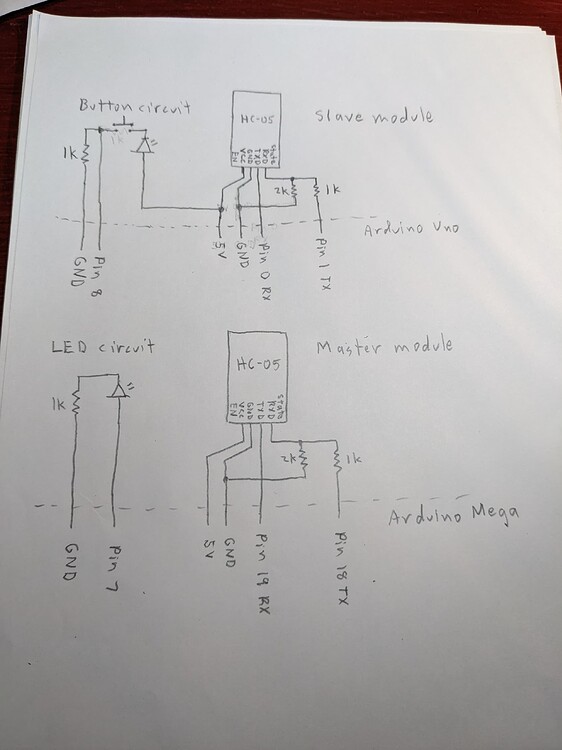 Button circuit
HC-05
Slave module
1k
EN
VCC
GND
TXD
RXD
State
2k
1k
Arduino Uno
GND
Pin 8
5V
GND
Pin 0 RX
Pin 1 TX
LED circuit
HC-05
Master module
1k
EN
VCC
GND
TXD
RXD
State
2k
1k
Arduino Mega
GND
Pin 7
5V
GND
Pin 19 RX
Pin 18 TX